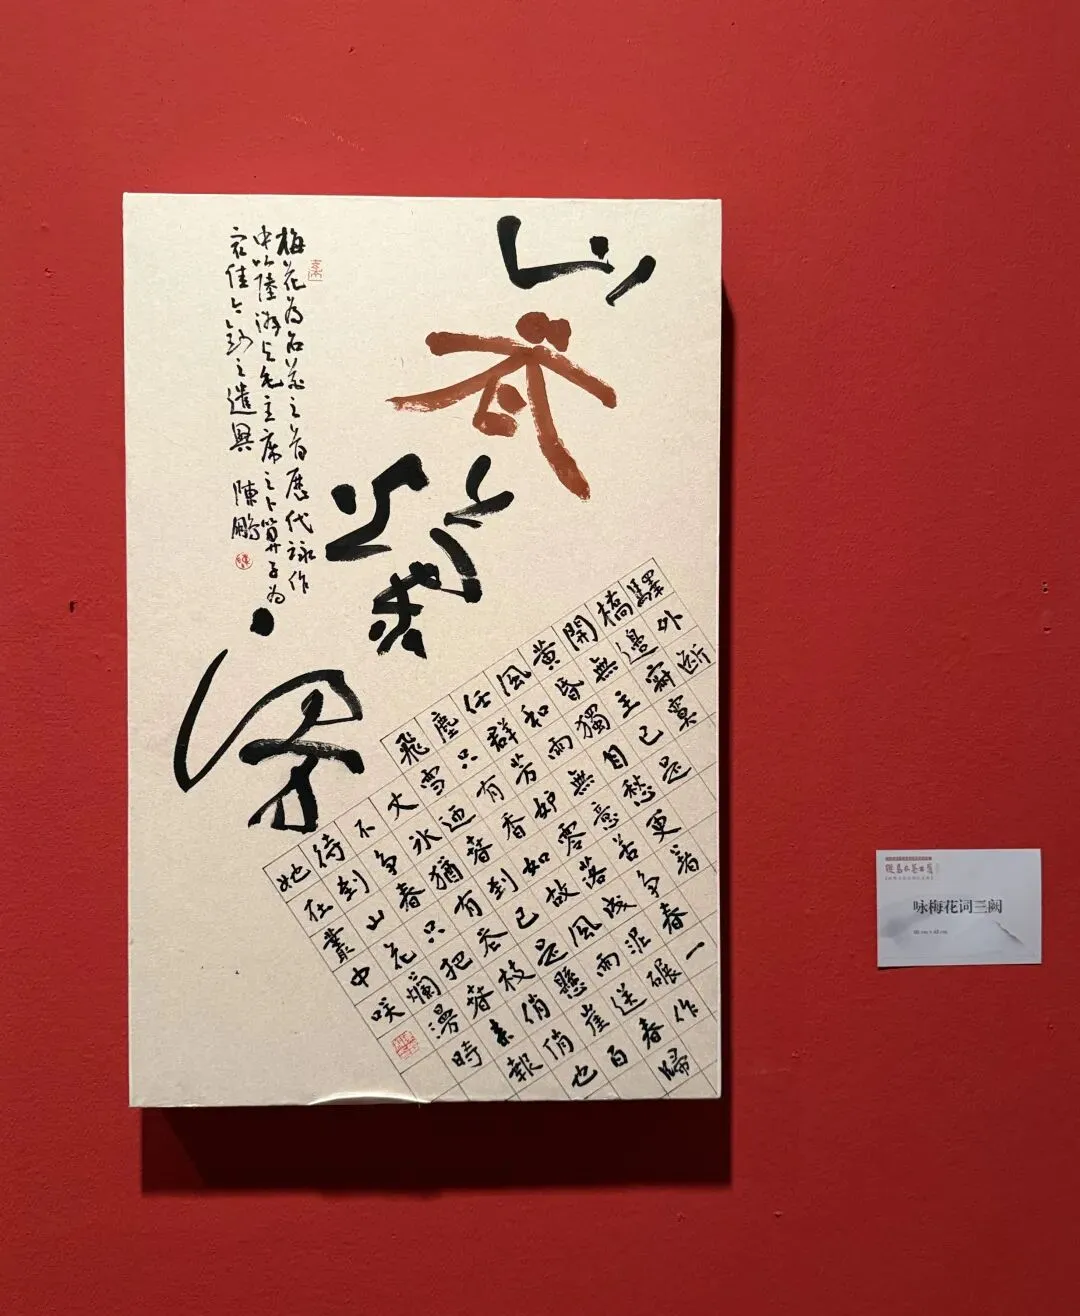 山
梅花為百花之首歷代詠作
中以陸游與毛主席之卜算子為
最佳今錄之遣興 陳鵬
驛外斷
橋邊寂寞
開無主已是
黃昏獨自愁更著
風和雨無意苦爭春一
任群芳妒零落成泥碾作
塵只有香如故風雨送春歸
飛雪迎春到已是懸崖百
丈冰猶有花枝俏俏也
不爭春只把春來報
待到山花爛漫時
她在叢中咲
咏梅花词三阙